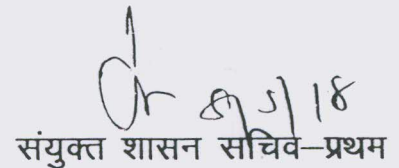 8/5/18
संयुक्त शासन सचिव–प्रथम